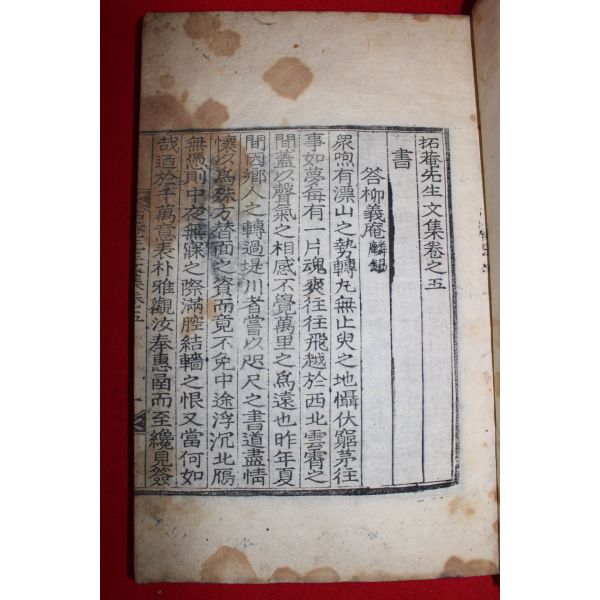 拓菴先生文集卷之五
書
答柳義庵麟錫
衆喣有漂山之勢轉丸無止臾之地懾伏窮茅往
事如夢每有一片魂爽往往飛越於西北雲霄之
間蓋以聲氣之相感不覺萬里之爲遠也昨年夏
間因鄉人之轉過堤川者嘗以咫尺之書道盡情
懷以爲殊方替面之資而竟不免中途浮沉北鴈
無憑則中夜無寐之際滿腔結轖之恨又當何如
哉迺於千萬意表朴雅觀汝奉惠凾而至纔見簽